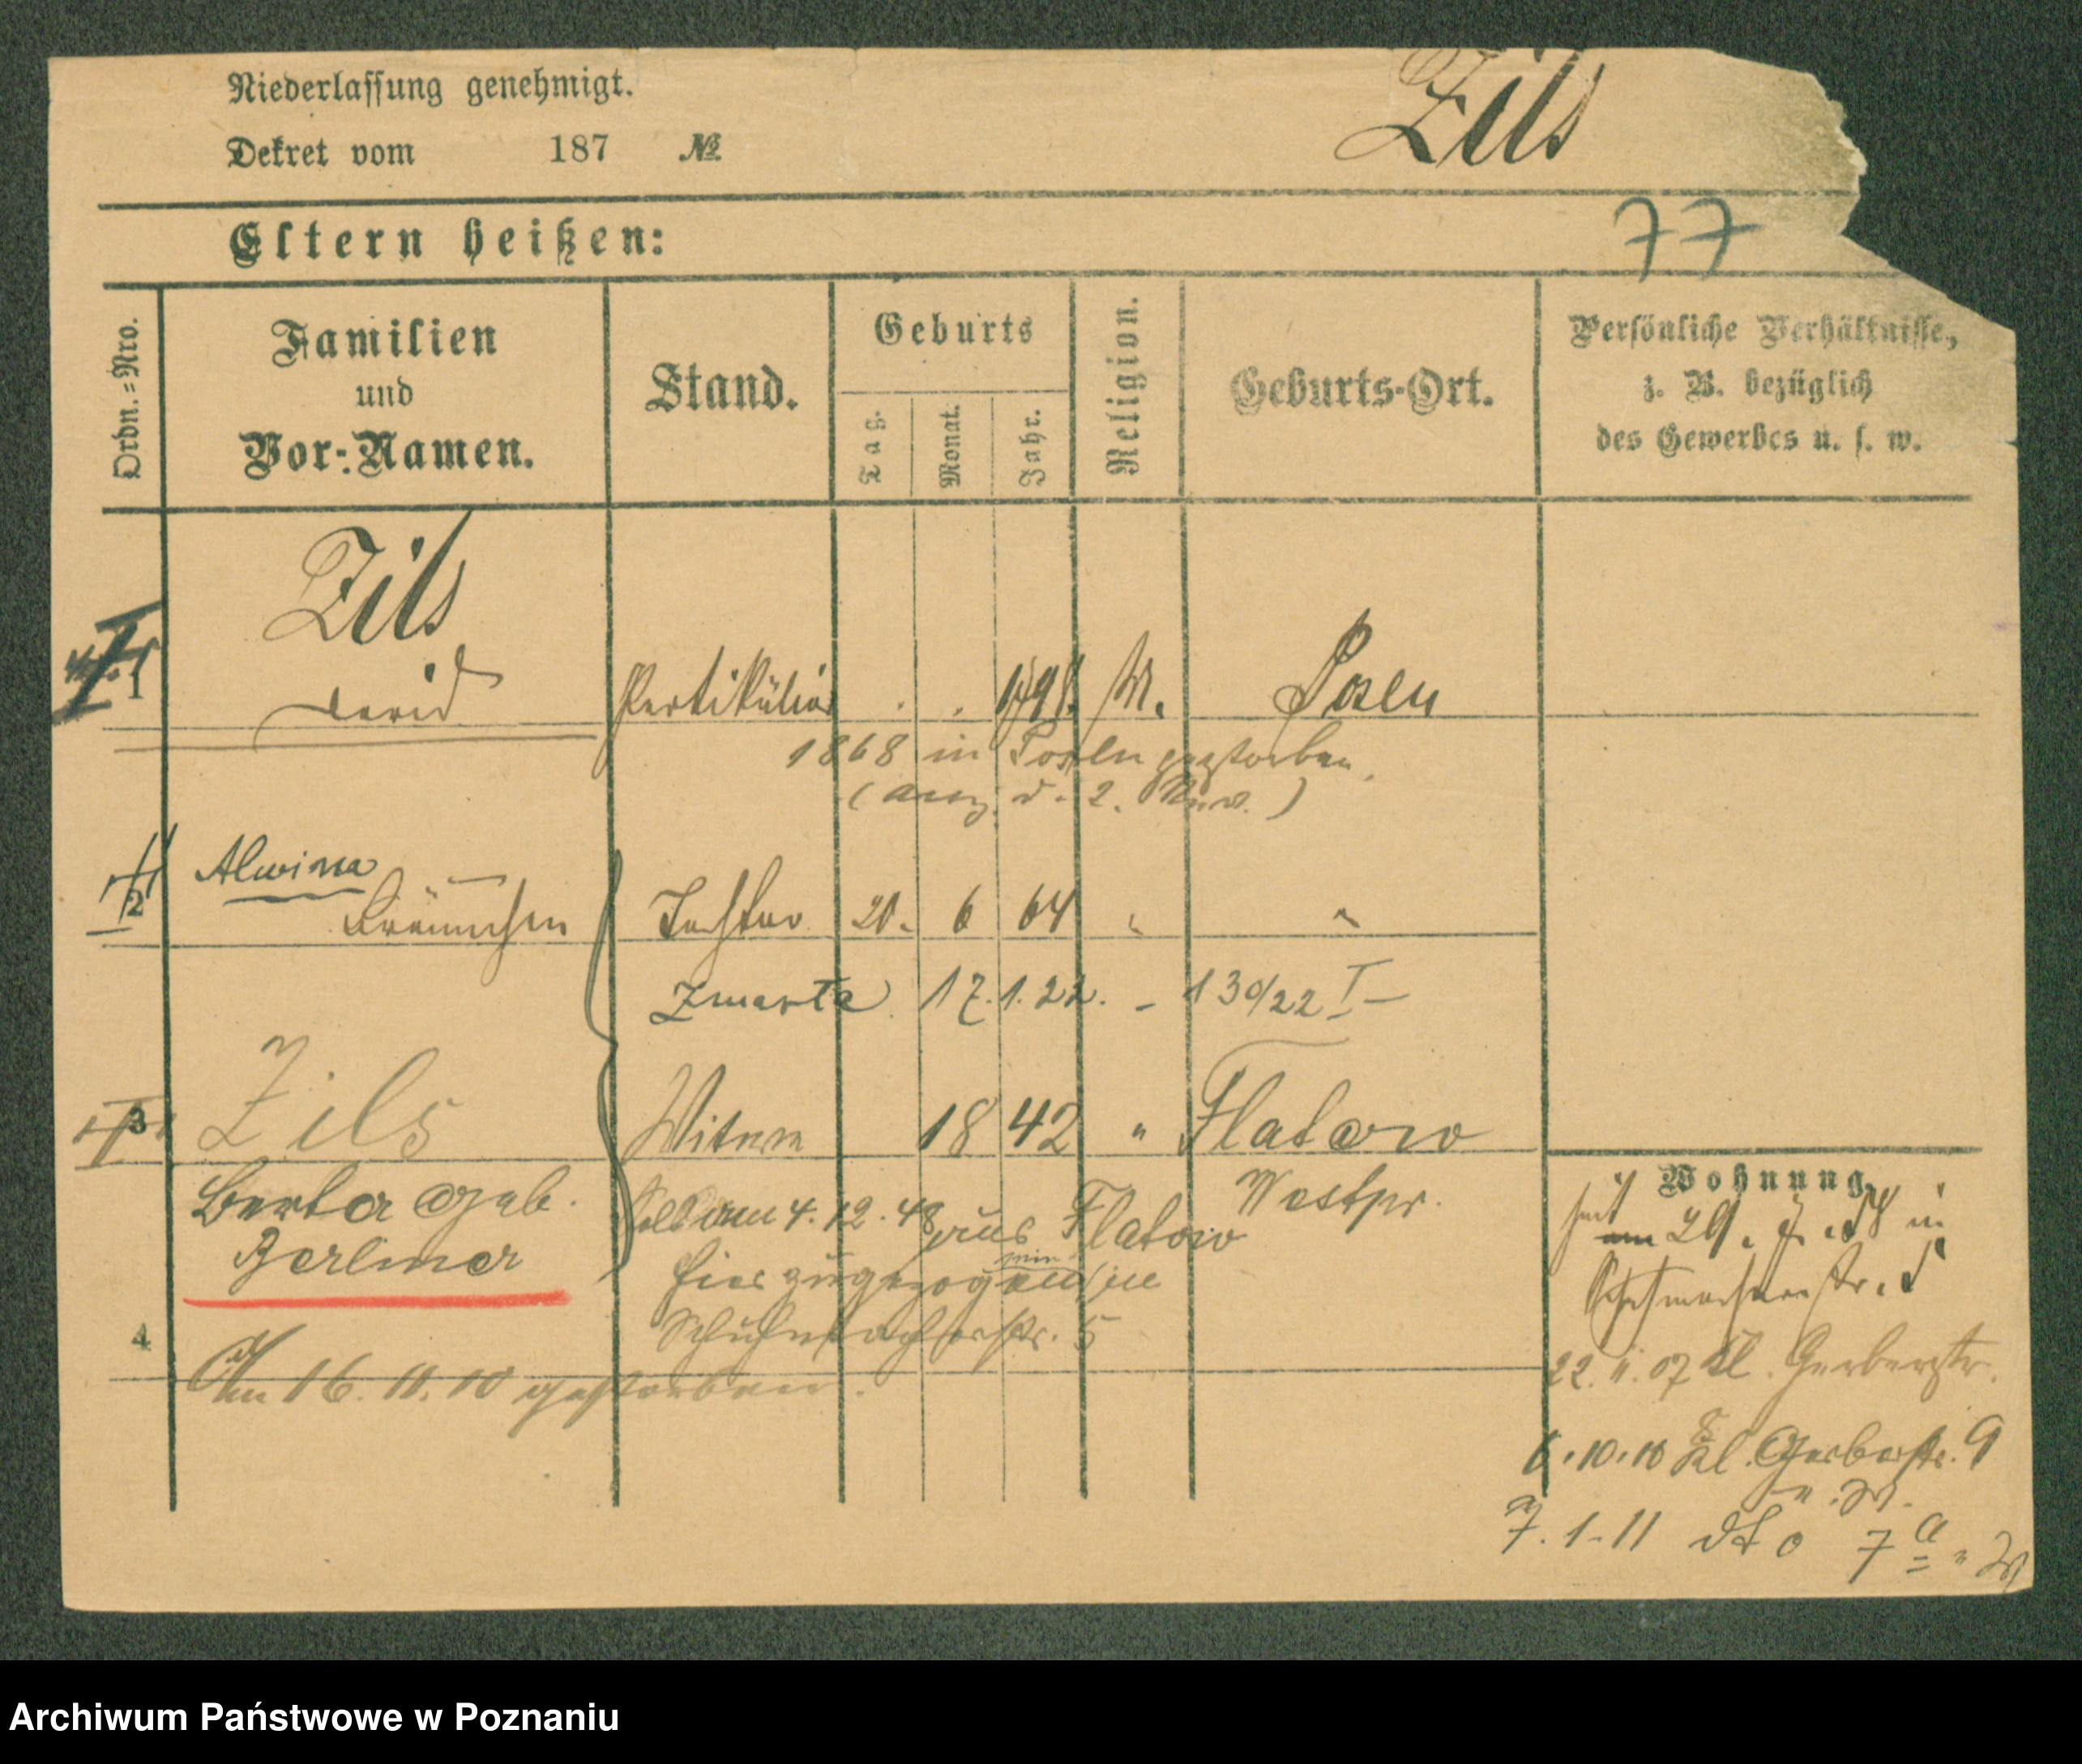 Niederlassung genehmigt.
Dekret vom 187 №
Zils
Eltern heißen:
77
Ordn.=Nro.
Familien
und
Vor-Namen.
Stand.
Geburts
Tag.
Monat.
Jahr.
Religion.
Geburts-Ort.
Persönliche Verhältnisse,
z. B. bezüglich
des Gewerbes u. s. w.
Zils
1 David Partikulier . . M. Posen
1868 in Posen gestorben
d. 2.
Alwina
2 Tochter 20. 6 64 " "
Zmarła 17.1.22. - 130/22 I -
3 Zils Witwe 18 42 " Flatow
Westpr.
Berta geb.
Berliner
am 4.12.48 aus Flatow
hier zugezogen
Schuhmacherstr. 5
4
Am 16.11.10 gestorben.
Wohnung.
seit
in
Schuhmacherstr. 5
22. 11. 07 Kl. Gerberstr.
6.10.10 Kl. Gerberstr. 9
7.1-11 dto 7a
Archiwum Państwowe w Poznaniu